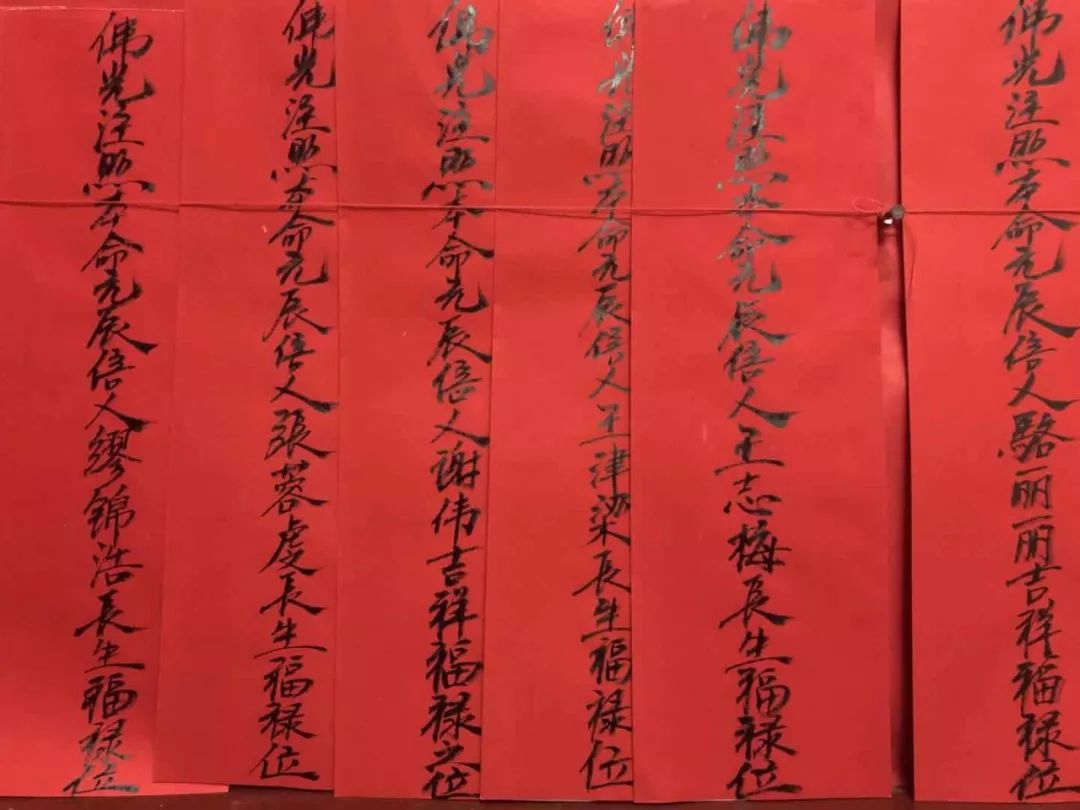 佛光注照本命元辰信人駱丽丽吉祥福禄位
佛光注照本命元辰信人王志梅長生福禄位
佛光注照本命元辰信人王津梁長生福禄位
佛光注照本命元辰信人謝伟吉祥福禄之位
佛光注照本命元辰信人張蓉長生福禄位
佛光注照本命元辰信人繆錦浩長生福禄位